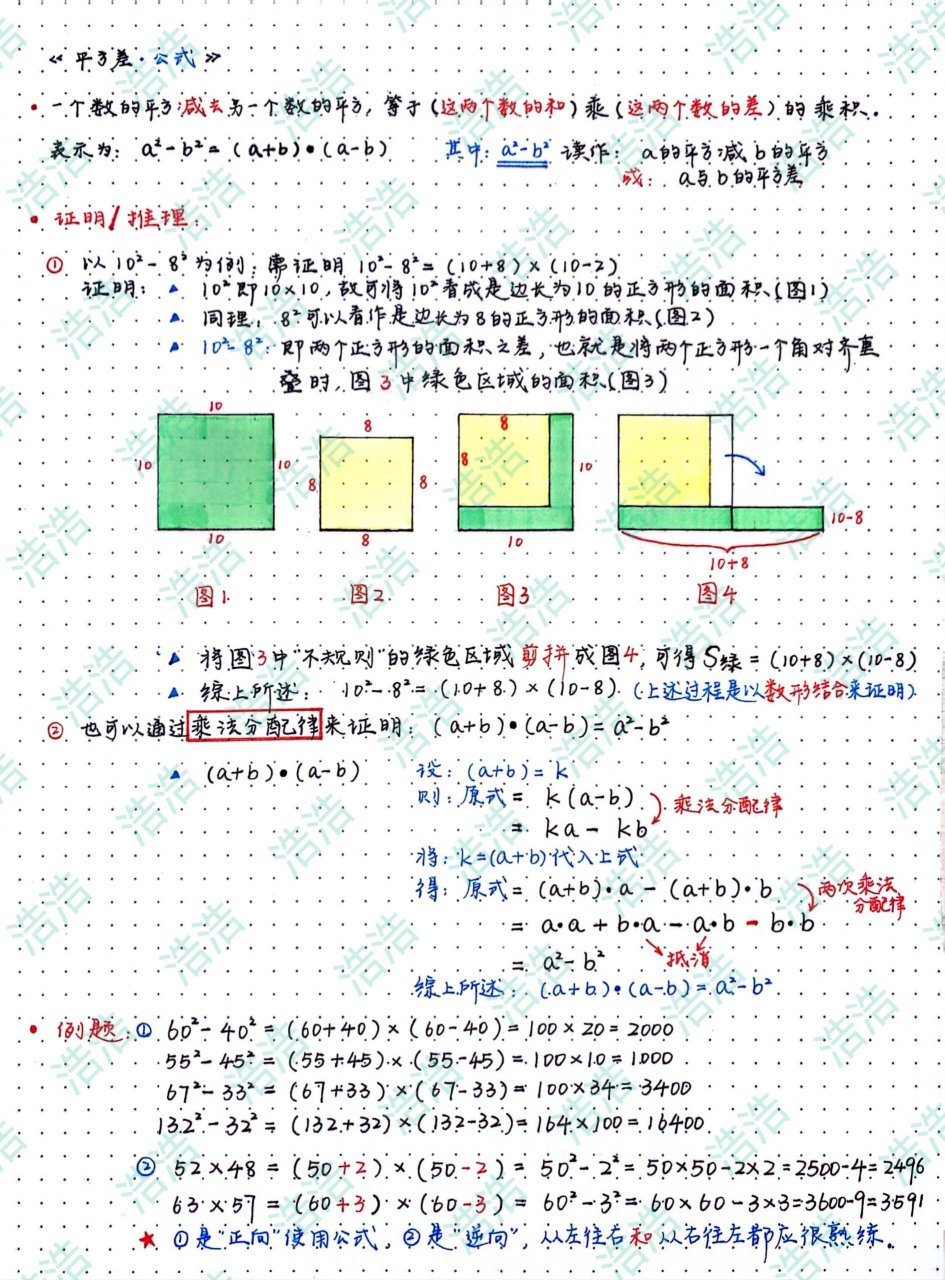 《平方差·公式》
• 一个数的平方减去另一个数的平方，等于(这两个数的和)乘(这两个数的差)的乘积。
表示为: a²-b²=(a+b)•(a-b) 其中: a²-b² 读作: a的平方减b的平方
或: a与b的平方差
• 证明/推理:
① 以10²-8²为例: 需证明10²-8²=(10+8)×(10-2)
证明: ▲ 10²即10×10,故可将10²看成是边长为10的正方形的面积(图1)
▲ 同理, 8²可以看作是边长为8的正方形的面积(图2)
▲ 10²-8²: 即两个正方形的面积之差,也就是将两个正方形一个角对齐重
叠时,图3中绿色区域的面积(图3)
10
10
10
10
8
8
8
8
8
8
10
10
10-8
10+8
图1 图2 图3 图4
▲ 将图3中"不规则"的绿色区域剪拼成图4,可得S绿=(10+8)×(10-8)
▲ 综上所述: 10²-8²=(10+8)×(10-8) (上述过程是以数形结合来证明)
② 也可以通过乘法分配律来证明: (a+b)•(a-b)=a²-b²
▲ (a+b)•(a-b) 设: (a+b)=k
则: 原式= k(a-b) 乘法分配律
= ka-kb
将: k=(a+b)代入上式
得: 原式=(a+b)•a-(a+b)•b 两次乘法
分配律
= a•a+b•a-a•b-b•b
抵消
= a²-b²
综上所述: (a+b)•(a-b)=a²-b²
• 例题: ① 60²-40²=(60+40)×(60-40)=100×20=2000
55²-45²=(55+45)×(55-45)=100×10=1000
67²-33²=(67+33)×(67-33)=100×34=3400
132²-32²=(132+32)×(132-32)=164×100=16400
② 52×48=(50+2)×(50-2)=50²-2²=50×50-2×2=2500-4=2496
63×57=(60+3)×(60-3)=60²-3²=60×60-3×3=3600-9=3591
★ ①是"正向"使用公式,②是"逆向",从左往右和从右往左都应很熟练。
浩浩